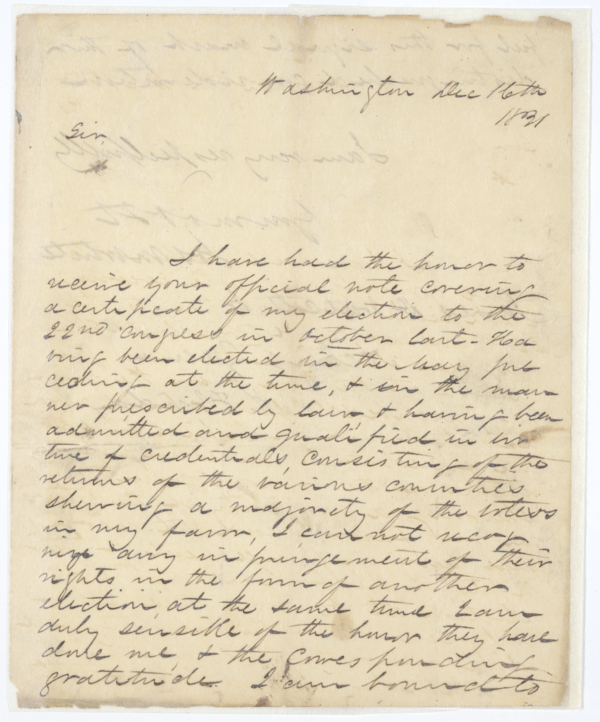 Washington Dec 16th
1831
Sir
I have had the honor to
receive your official note covering
a certificate of my election to the
22nd Congress in October last. Ha
ving been elected in the May pre
ceding at the time, & in the man
ner prescribed by law & having been
admitted and qualified in vir
tue of credentials, consisting of the
returns of the various counties
shewing a majority of the votes
in my favor, I can not recog
nize any infringement of their
rights in the form of another
election, at the same time I am
duly sensible of the honor they have
done me & the corresponding
gratitude I am bound to